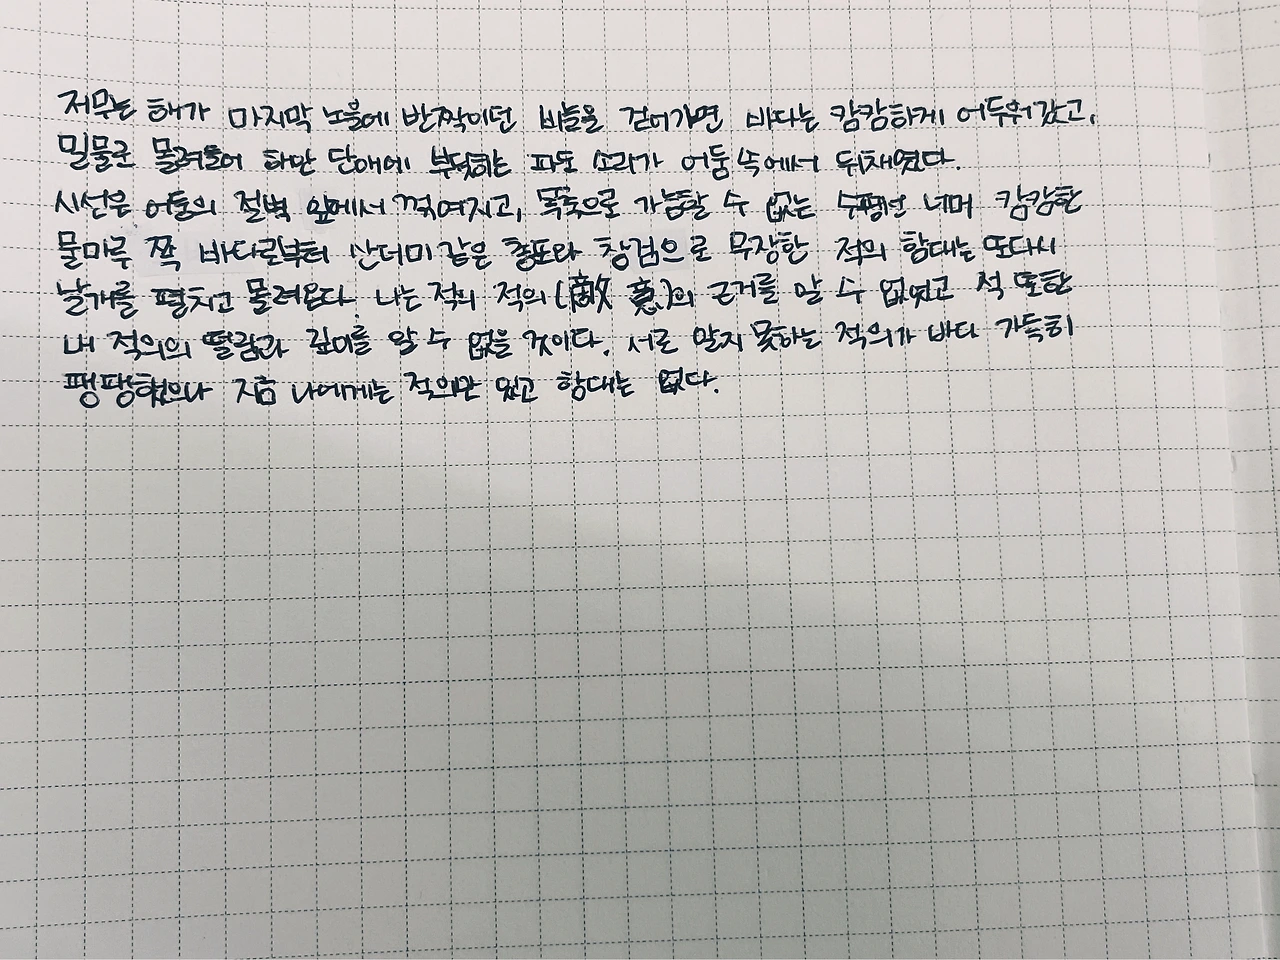 저무는 해가 마지막 노을에 반짝이던 비늘을 걷어가면 바다는 캄캄하게 어두워갔고,
밀물로 몰려들어 해안 단애에 부딪히는 파도 소리가 어둠 속에서 뒤채였다.
시선은 어둠의 절벽 앞에서 꺾여지고, 목측으로 가늠할 수 없는 수평선 너머 캄캄한
물마루 쪽 바다로부터 산더미 같은 총포와 창검으로 무장한 적의 함대는 또다시
날개를 펼치고 몰려온다. 나는 적의 적의(敵意)의 근거를 알 수 없었고 적 또한
내 적의의 떨림과 깊이를 알 수 없을 것이다. 서로 알지 못하는 적의가 바다 가득히
팽팽했으나 지금 나에게는 적의만 있고 함대는 없다.